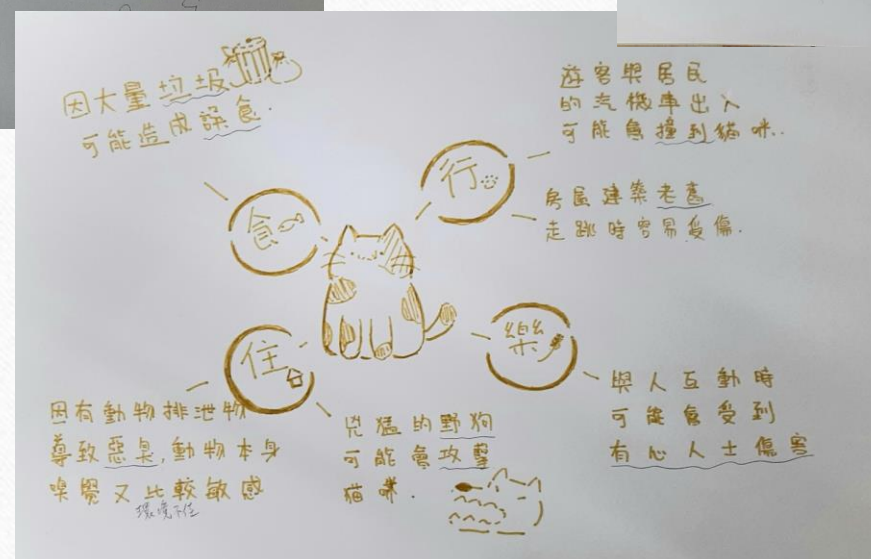 因大量垃圾
可能造成誤食.
食
行
遊客與居民
的汽機車出入
可能會撞到貓咪..
房區建築老舊
走跳時容易受傷.
住
因有動物排泄物
導致惡臭,動物本身
嗅覺又比較敏感
環境不佳
兇猛的野狗
可能會攻擊
貓咪.
樂
與人互動時
可能會受到
有心人士傷害